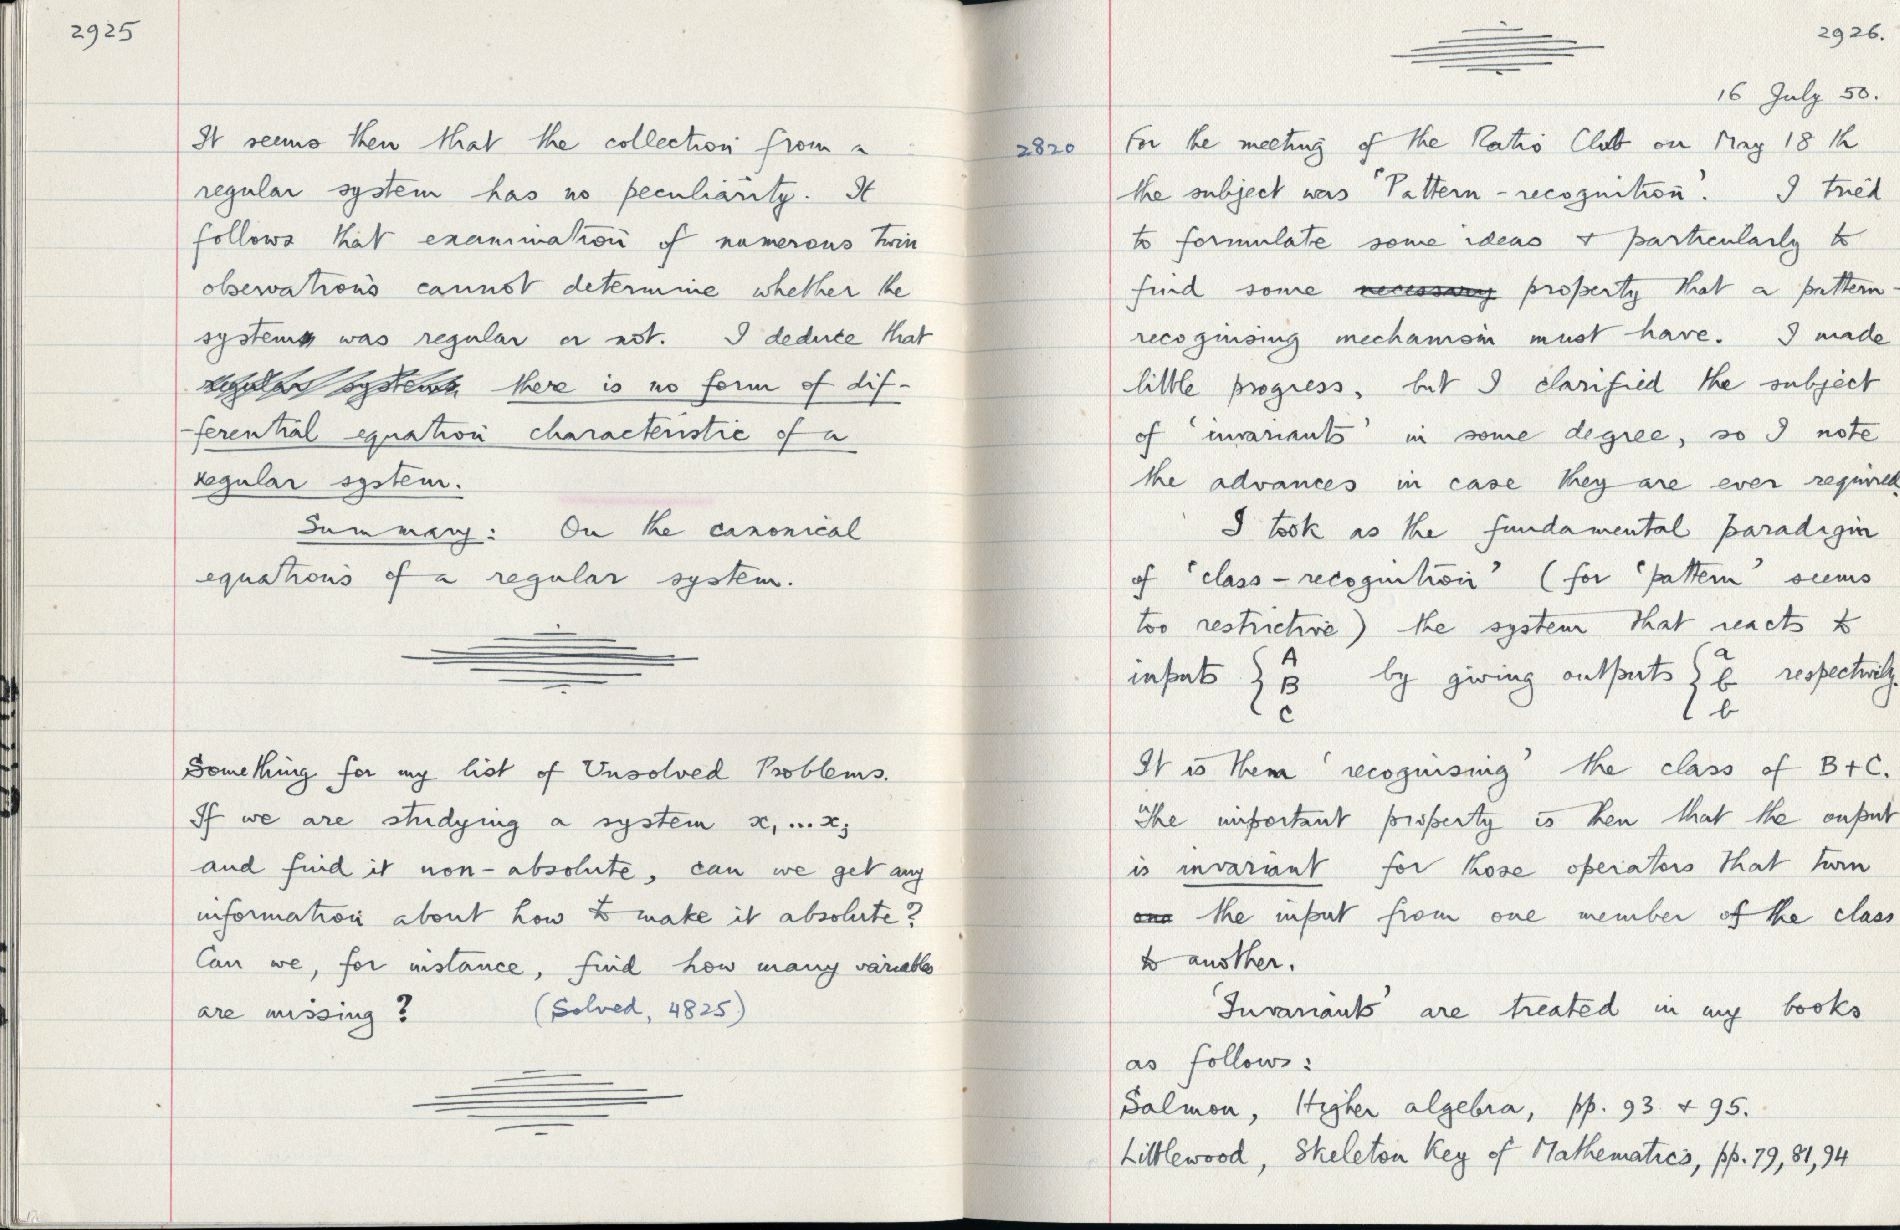 2925
It seems then that the collection from a
regular system has no peculiarity. It
follows that examination of numerous twin
observations cannot determine whether the
system was regular or not. I deduce that
regular systems there is no form of dif-
-ferential equation characteristic of a
regular system.
Summary: On the canonical
equations of a regular system.
Something for my list of Unsolved Problems.
If we are studying a system x, ... xj
and find it non-absolute, can we get any
information about how to make it absolute?
Can we, for instance, find how many variables
are missing? (Solved, 4825)
2926.
16 July 50.
2820 For the meeting of the Ratio Club on May 18th
the subject was 'Pattern-recognition'. I tried
to formulate some ideas + particularly to
find some necessary property that a pattern-
recognising mechanism must have. I made
little progress, but I clarified the subject
of 'invariants' in some degree, so I note
the advances in case they are ever required.
I took as the fundamental paradigm
of 'class-recognition' (for 'pattern' seems
too restrictive) the system that reacts to
inputs { A B C by giving outputs { a b b respectively.
It is then 'recognising' the class of B+C.
The important property is then that the ouput
is invariant for those operators that turn
one the input from one member of the class
to another.
'Invariants' are treated in my books
as follows:
Salmon, Higher algebra, pp. 93 + 95.
Littlewood, Skeleton Key of Mathematics, pp. 79, 81, 94